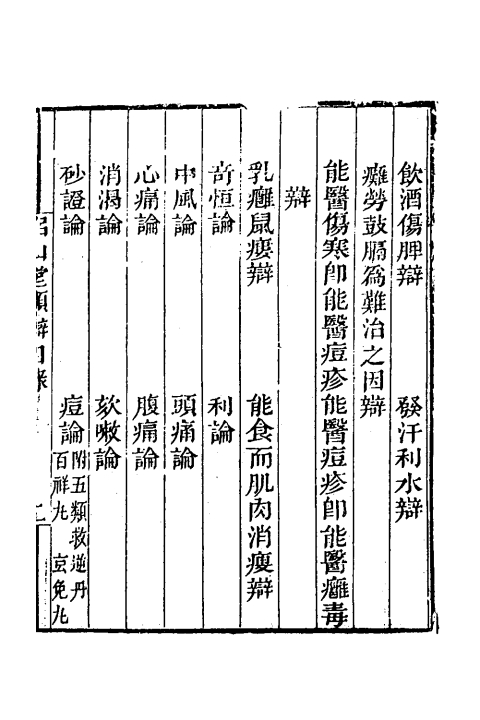 飲酒傷脾辯　發汗利水辯
癰勞鼓膈爲難治之因辯
能醫傷寒卽能醫痘疹能醫痘疹卽能醫癰毒
辯
乳癰鼠瘻辯　能食而肌肉消瘦辯
奇恒論　利論
中風論　頭痛論
心痛論　腹痛論
消渴論　欬嗽論
砂證論　痘論附五類救逆丹
百祥丸　京免丸
侶山堂類辯目錄